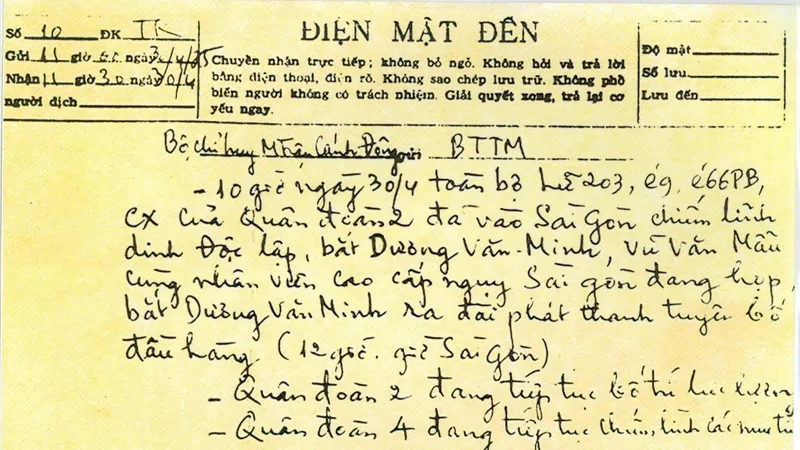 Số 10 ĐK TK
ĐIỆN MẬT ĐẾN
Gửi 11 giờ ngày 30/4/75
Nhận 11 giờ 30 ngày 30/4
người dịch
Chuyển nhận trực tiếp; không bỏ ngỏ. Không hỏi và trả lời
bằng điện thoại, điện rõ. Không sao chép lưu trữ. Không phổ
biến người không có trách nhiệm. Giải quyết xong, trả lại cơ
yếu ngay.
Độ mật
Số lưu
Lưu đến
Bộ chỉ huy Mtrận Cánh Đông gửi BTTM
- 10 giờ ngày 30/4 toàn bộ lữ 203, e9, e66PB,
CX của Quân đoàn 2 đã vào Sài Gòn chiếm lĩnh
dinh Độc lập, bắt Dương Văn-Minh, Vũ Văn Mẫu
cùng nhân viên cao cấp ngụy Sài gòn đang họp,
bắt Dương Văn Minh ra đài phát thanh tuyên bố
đầu hàng (12 giờ. giờ Sài Gòn)
- Quân đoàn 2 đang tiếp tục bố trí lực lượng
- Quân đoàn 4 đang tiếp tục chiếm lĩnh các mục